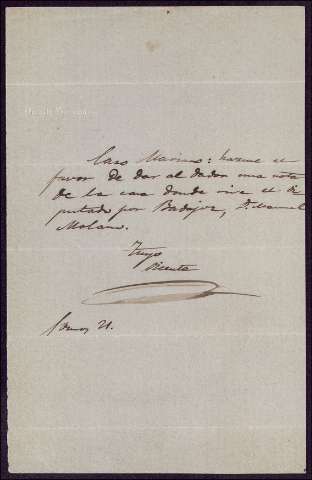 Caro Mariano: hazme el
favor de dar al dador una nota
de la casa donde vive el di
putado por Badajoz, D. Manuel
Molano.
Tuyo
Vicente
21.